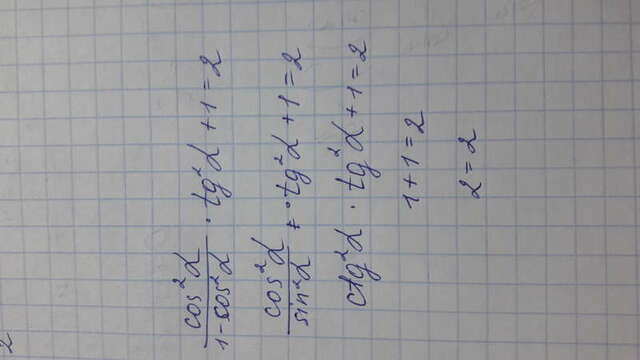 cos²α / 1-cos²α · tg²α + 1 = 2
cos²α / sin²α · tg²α + 1 = 2
ctg²α · tg²α + 1 = 2
1 + 1 = 2
2 = 2